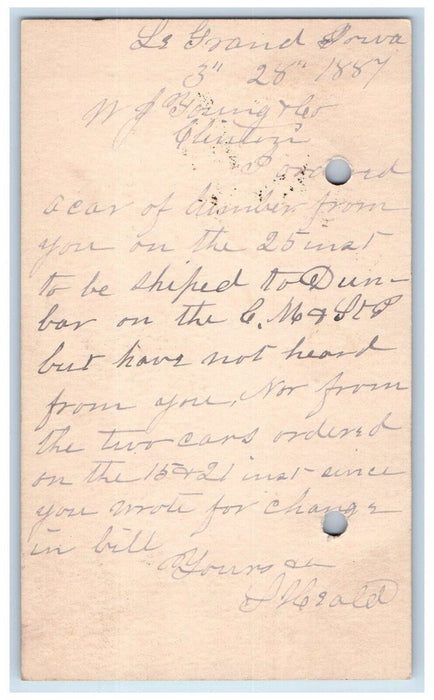 Le Grand Iowa
3" 28" 1887
W J Young & Co
Clinton
I ordered
a car of lumber from
you on the 25 inst
to be shiped to Dun-
bar on the C. M & St P
but have not heard
from you, Nor from
the two cars ordered
on the 15 & 21 inst since
you wrote for change
in bill
Yours &c
Herald